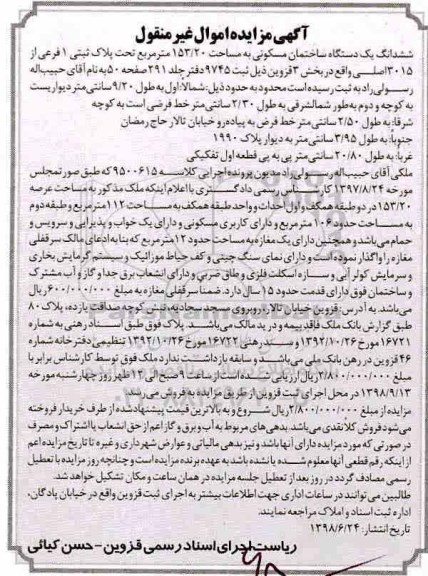 آگهی مزایده اموال غیر منقول
ششدانگ یک دستگاه ساختمان مسکونی به مساحت ۱۵۳/۲۰ مترمربع تحت پلاک ثبتی ۱ فرعی از
۳۰۱۵ اصلی واقع در بخش ۳ قزوین ذیل ثبت ۹۷۴۵ دفتر جلد ۲۹۱ صفحه ۵۰ به نام آقای حبیب‌اله
رسولی راد به ثبت رسیده است محدود به حدود ذیل: شمالا: اول به طول ۹/۲۰ سانتی متر دیواریست
به کوچه و دوم به طور شمالشرقی به طول ۲/۳۰ سانتی متر خط فرضی است به کوچه
شرقا: به طول ۲/۵۰ سانتی متر خط فرض به پیاده‌رو خیابان تالار حاج رمضان
جنوبا: به طول ۳/۹۵ سانتی متر به دیوار پلاک ۱۹۹۰
غربا: به طول ۲۰/۸۰ سانتی متر پی به پی قطعه اول تفکیکی
ملکی آقای حبیب‌اله رسولی راد مدیون پرونده اجرایی کلاسه ۹۵۰۰۶۱۵ که طبق صورتمجلس
مورخه ۱۳۹۷/۸/۲۴ کارشناس رسمی دادگستری با اعلام اینکه ملک مذکور به مساحت عرصه
۱۵۳/۲۰ در دو طبقه همکف و اول احداث و واحد طبقه همکف به مساحت ۱۱۲ مترمربع و طبقه دوم
به مساحت حدود ۱۰۶ مترمربع و دارای کاربری مسکونی و دارای یک خواب و پذیرایی و سرویس و
حمام می‌باشد و همچنین دارای یک مغازه به مساحت حدود ۱۲ مترمربع که بنا به ادعای مالک سرقفلی
مغازه را واگذار نموده است و دارای نمای سنگ چینی و کف حیاط موزائیک و سیستم گرمایش بخاری
و سرمایش کولر آبی و سازه اسکلت فلزی و طاق ضربی و دارای انشعاب برق جدا و گاز و آب مشترک
و ساختمان فوق دارای قدمت حدود ۱۵ سال دارد. ضمنا سرقفلی مغازه به مبلغ ۶۰۰/۰۰۰/۰۰۰ ریال
می‌باشد. به آدرس: قزوین خیابان تالار، روبروی مسجد سجادیه، نبش کوچه صداقت یازده، پلاک ۸۰
طبق گزارش بانک ملک فاقد بیمه و در ید مالک می‌باشد. پلاک فوق طبق اسناد رهنی به شماره
۱۶۷۲۱ مورخ ۱۳۹۲/۱۰/۲۶ و سند رهنی ۱۶۷۲۲ مورخ ۱۳۹۲/۱۰/۲۶ تنظیمی دفترخانه شماره
۴۶ قزوین در رهن بانک ملی می‌باشد و سابقه بازداشت ندارد ملک فوق توسط کارشناس برابر با
مبلغ ۲/۸۰۰/۰۰۰/۰۰۰ ریال ارزیابی شده است از ساعت ۹ صبح الی ۱۲ ظهر روز چهارشنبه مورخه
۱۳۹۸/۹/۱۳ در محل اجرای ثبت قزوین از طریق مزایده به فروش می‌رسد
مزایده از مبلغ ۲/۸۰۰/۰۰۰/۰۰۰ ریال شروع و به بالاترین قیمت پیشنهاد شده از طرف خریدار فروخته
می‌شود فروش کلا نقدی می‌باشد. بدهی‌های مربوط به آب و برق و گاز اعم از حق انشعاب یا اشتراک و مصرف
در صورتی که مورد مزایده دارای آنها باشد و نیز بدهی مالیاتی و عوارض شهرداری و غیره تا تاریخ مزایده اعم
از اینکه رقم قطعی آنها معلوم شده یا نشده باشد به عهده برنده مزایده است و چنانچه روز مزایده با تعطیل
رسمی مصادف گردد در روز بعد از تعطیل جلسه مزایده در همان ساعت و مکان تشکیل خواهد شد.
طالبین می توانند در ساعات اداری جهت اطلاعات بیشتر به اجرای ثبت قزوین واقع در خیابان پادگان،
اداره ثبت اسناد و املاک مراجعه نمایند.
تاریخ انتشار: ۱۳۹۸/۶/۲۴
ریاست اجرای اسناد رسمی قزوین - حسن کیائی